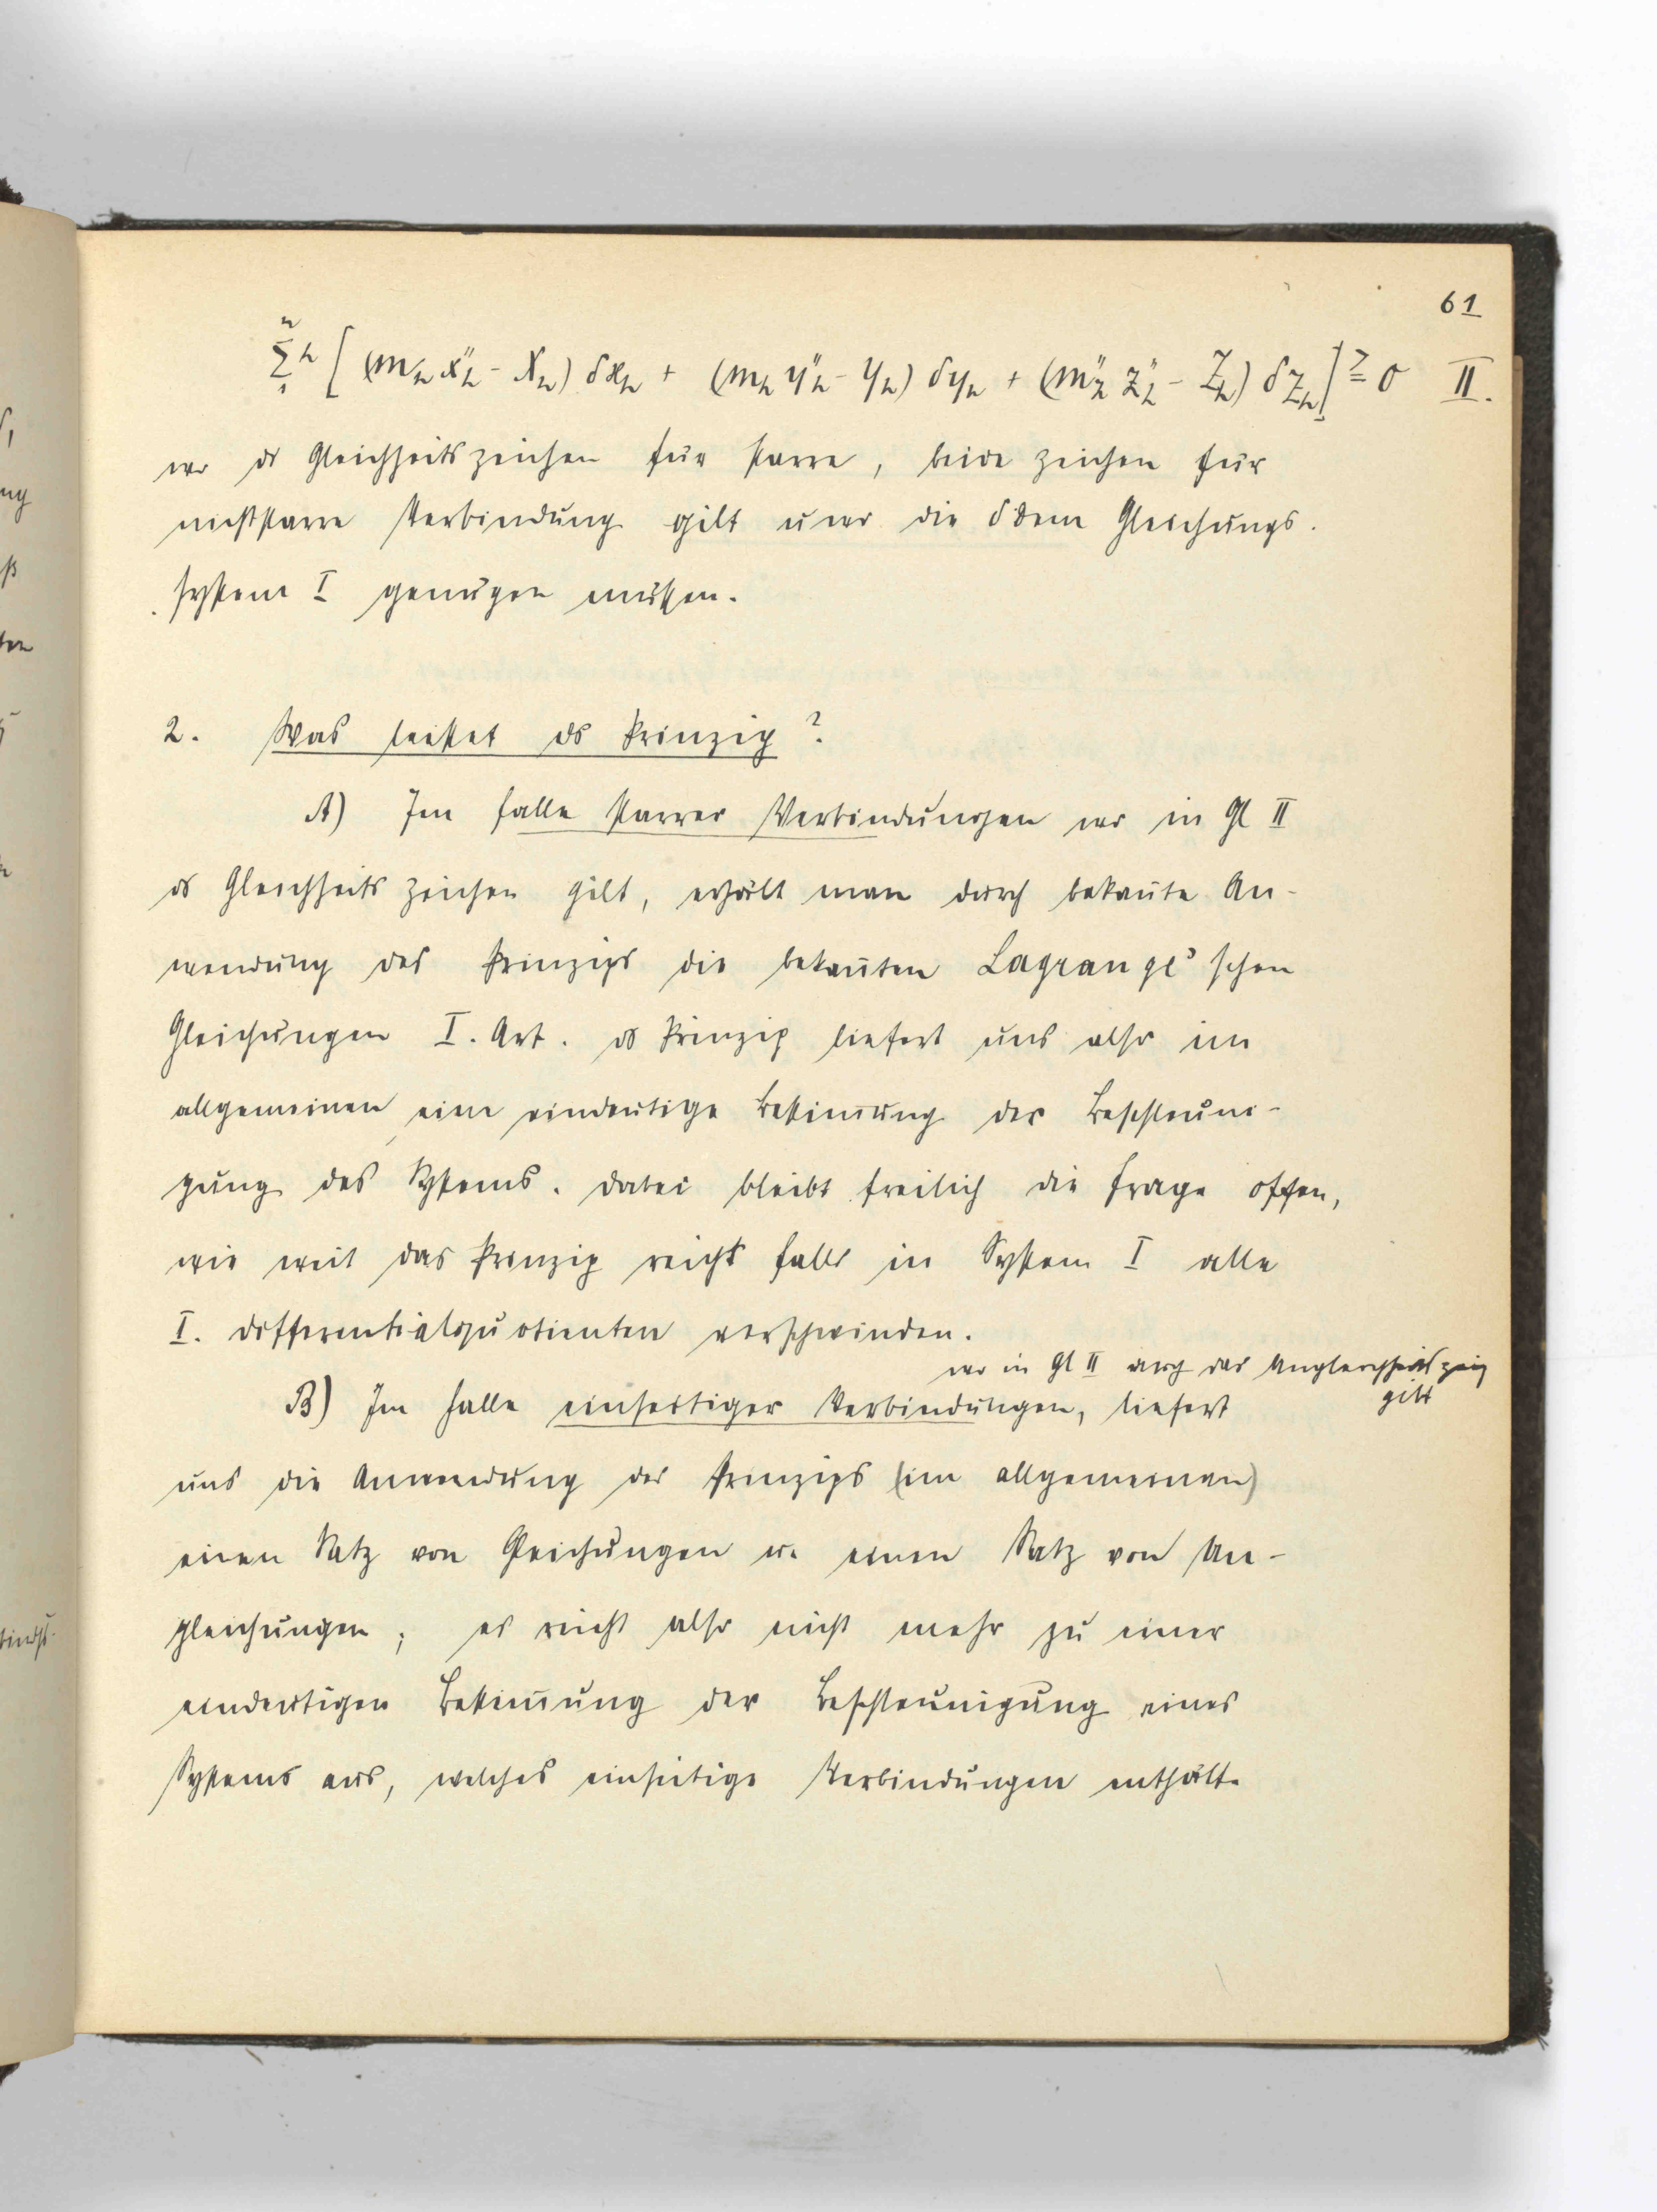 61
n
Σʰ [ (mₕ x″ₕ - Xₕ) δxₕ + (mₕ y″ₕ - Yₕ) δyₕ + (m″ₕ z″ₕ - Zₕ) δzₕ ] ≧ 0 II.
1
wo ds Gleichheitszeichen für starre, beide Zeichen für
nichtstarre Verbindung gilt u wo die δ dem Gleichungs-
system I genügen müssen.
2. Was leistet ds Prinzip?
A) Im Falle starrer Verbindungen wo in Gl II
ds Gleichheitszeichen gilt, erhält man durch bekan̄te An-
wendung des Prinzips die bekan̄ten Lagrange'schen
Gleichungen I. Art. ds Prinzip liefert uns also im
allgemeinen eine eindeutige Bestim̄ung der Beschleuni-
gung des Systems. Dabei bleibt freilich die Frage offen,
wie weit das Prinzip reicht falls in System I alle
I. Differentialquotienten verschwinden.
wo in Gl II auch das Ungleichheitszeich
gilt
B) Im Falle einseitiger Verbindungen, liefert
uns die Anwendung des Prinzips (im allgemeinen)
einen Satz von Gleichungen u. einen Satz von Un-
gleichungen; es reicht also nicht mehr zu einer
eindeutigen Bestim̄ung der Beschleunigung eines
Systems aus, welches einseitige Verbindungen enthält.